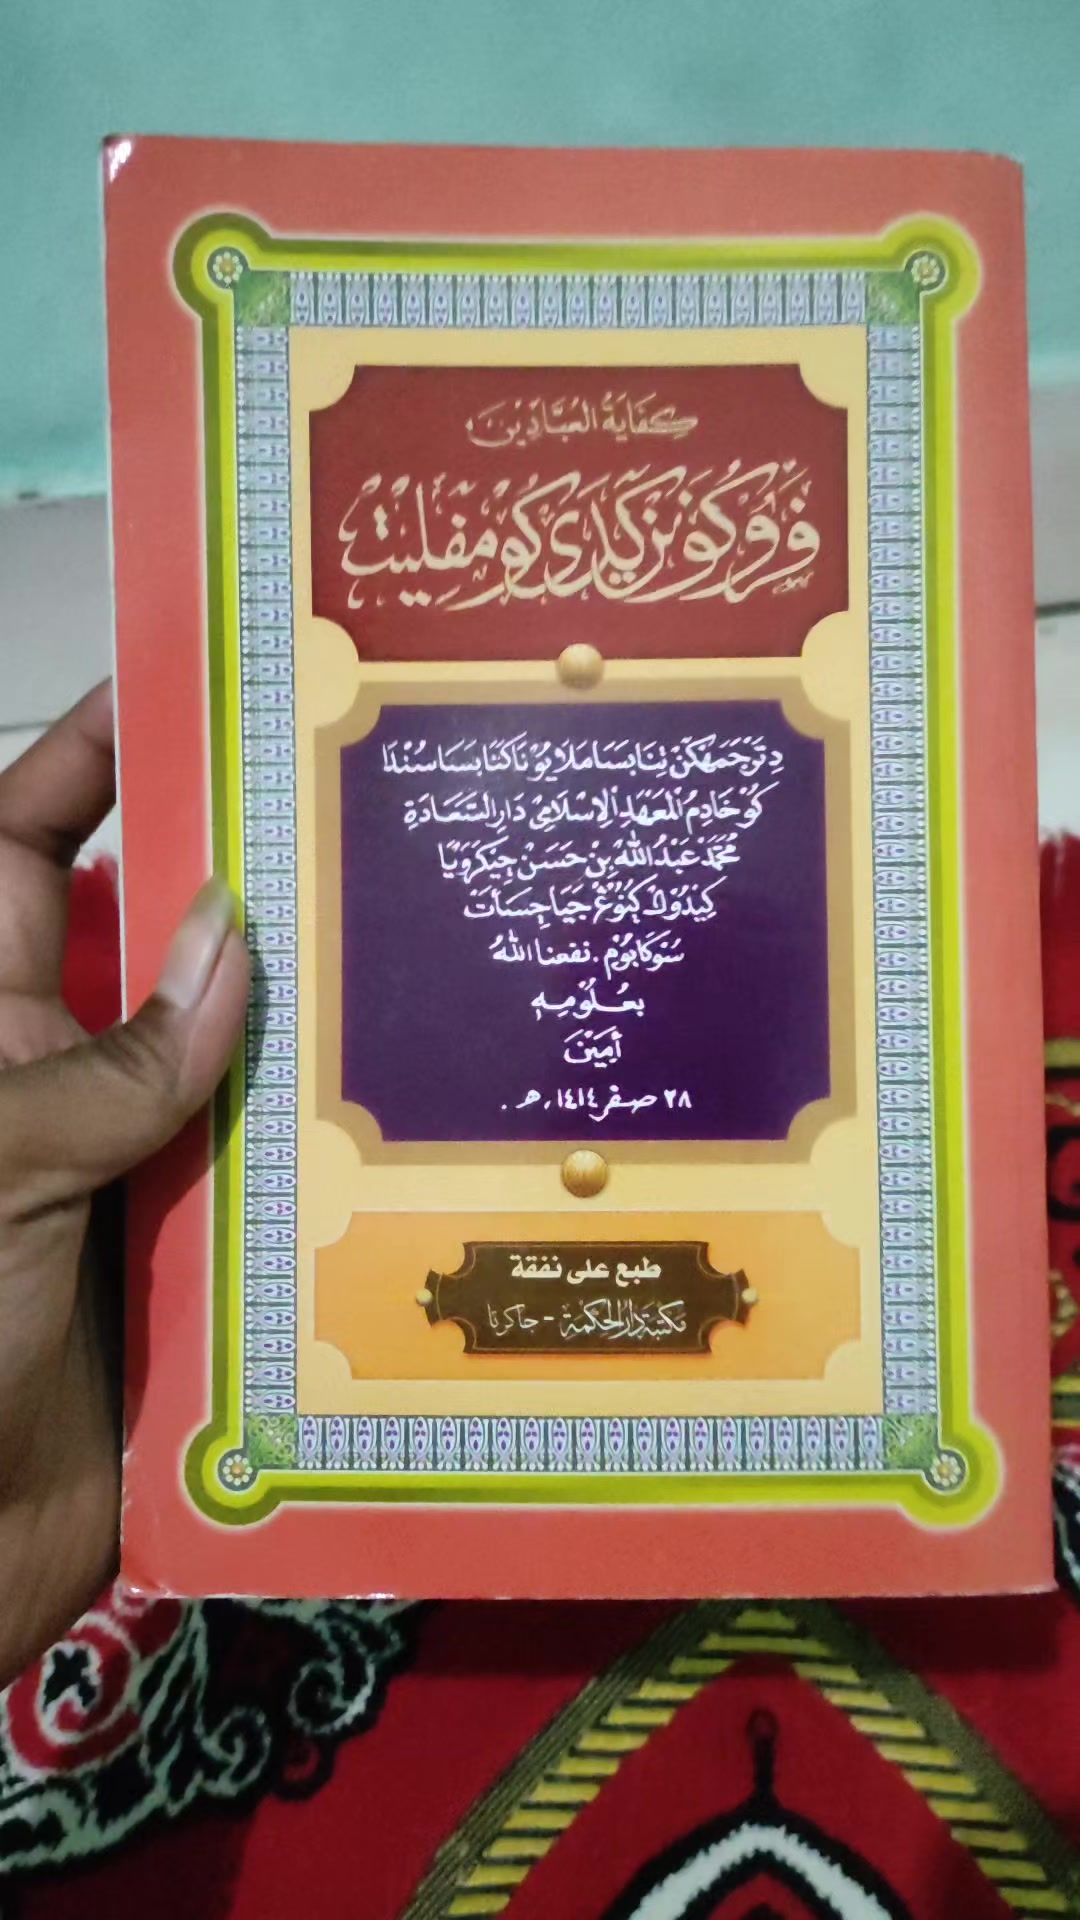 كِفَايَةُ العُبَّادِيْنَ
فَرُوكُونَنْ كَيْدَىْ كُومْفلِيْتْ
دِتَرْجَمَهْكَنْ تِنَا بَسَا مَلَايُوْ نَاكَنَا بَسَا سُنْدَا
كُوْ خَادِمُ الْمَعْهَدِ الْاِسْلَامِىْ دَارِ السَّعَادَةِ
مُحَمَّدْ عَبْدُ اللّٰهْ بِنْ حَسَنْ چِيْكَرَوَيَا
كِيْدُوْلْ ڮُنُوْڠْ جَيَا چِسَاأَتْ
سُوْكَابُوْمِ . نفعنا اللّٰهُ
بعُلُوْمِهِ
أٰمِيْنَ
٢٨ صفر ١٤١٤ .ه .
طبع على نفقة
مكتبة دار الحكمة - جاكرتا